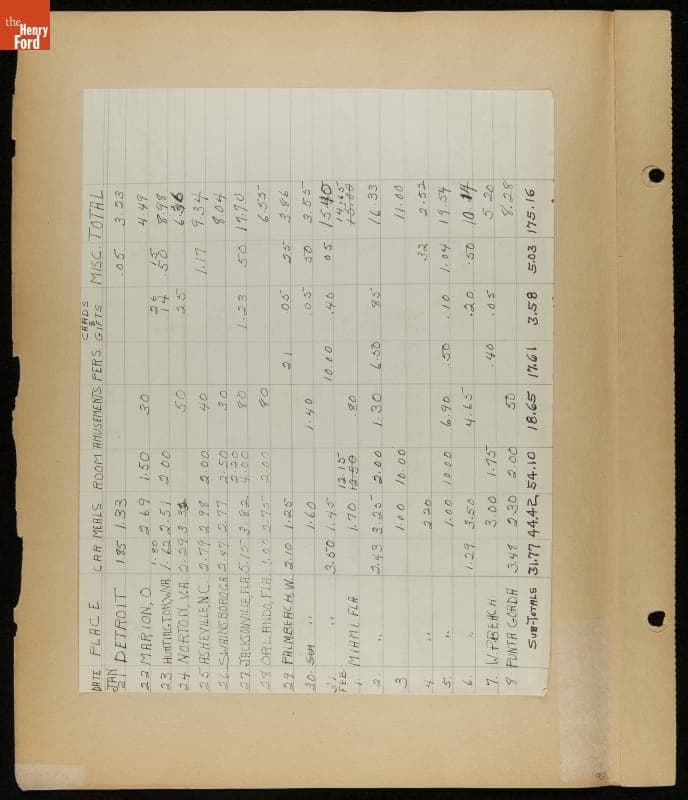 the
Henry
Ford
DATE PLACE CAR MEALS ROOM AMUSEMENTS PERS. CARDS & GIFTS MISC. TOTAL
JAN
21 DETROIT 1.85 1.33 .05 3.23
22 MARION, O. 2.69 1.50 30 4.49
23 HUNTINGTON, WVA 1.80 1.62 2.51 2.00 26 14 15 .50 8.98
24 NORTON, VA 2.29 50 25
25 ASHEVILLE, N.C. 2.79 2.98 2.00 40 1.17 9.34
26 SWAINSBORO, GA 2.47 2.77 2.50 30 8.04
27 JACKSONVILLE, FLA. 5.15 3.82 2.20 4.00 80 1.23 .50 17.70
28 ORLANDO, FLA. 1.00 2.75 2.00 80 6.55
29 PALM BEACH, W. 2.10 1.25 21 .05 25 3.86
30 SUN " 1.60 1.40 .05 50 3.55
31 " 3.50 1.45 10.00 .40 05 15.40
FEB.
1 MIAMI FLA 1.70 12.15 12.50 .80 14.65 15.00
2 " 2.43 3.25 2.00 1.30 6.50 85 16.33
3 1.00 10.00 11.00
4 " 2.20 32 2.52
5 " 1.00 10.00 6.90 .50 .10 1.04 19.54
6 " 1.29 3.50 4.65 .20 .50 10.14
7 W.P. BEACH 3.00 1.75 .40 .05 5.20
8 PUNTA GORDA 3.48 2.30 2.00 50 8.28
SUB-TOTALS 31.77 44.42 54.10 18.65 17.61 3.58 5.03 175.16